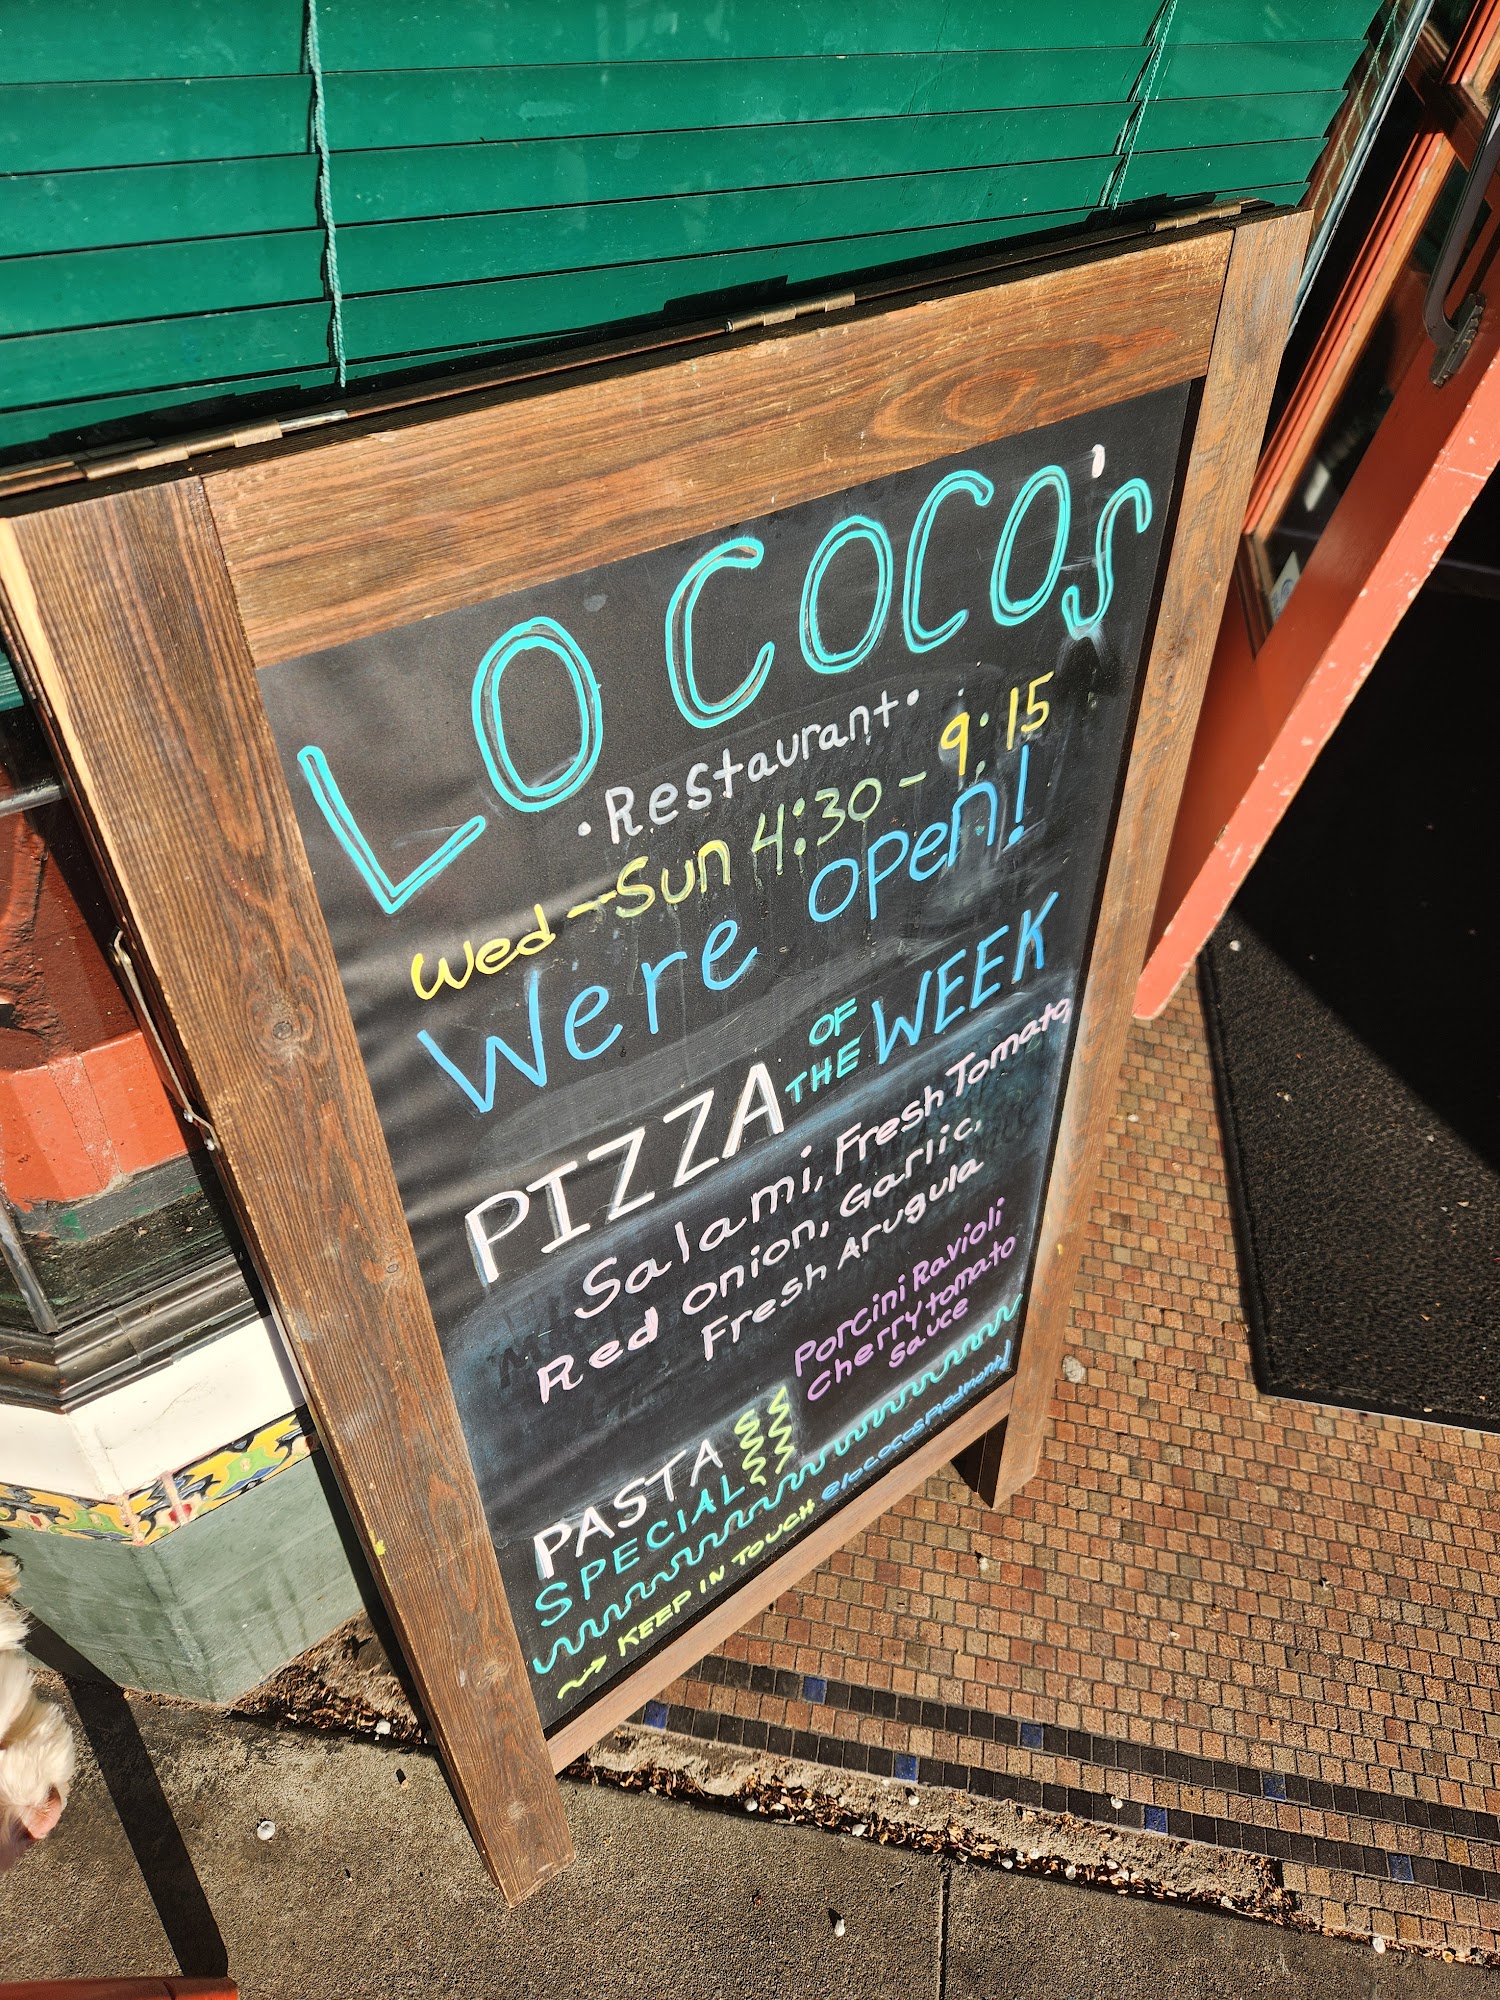 LO COCO's
·Restaurant·
Wed-Sun 4:30-9:15
Were open!
PIZZA OF THE WEEK
Salami, Fresh Tomato,
Red onion, Garlic,
Fresh Arugula
Porcini Ravioli
Cherry tomato
Sauce
PASTA
SPECIAL
KEEP IN TOUCH @lococospiedmont